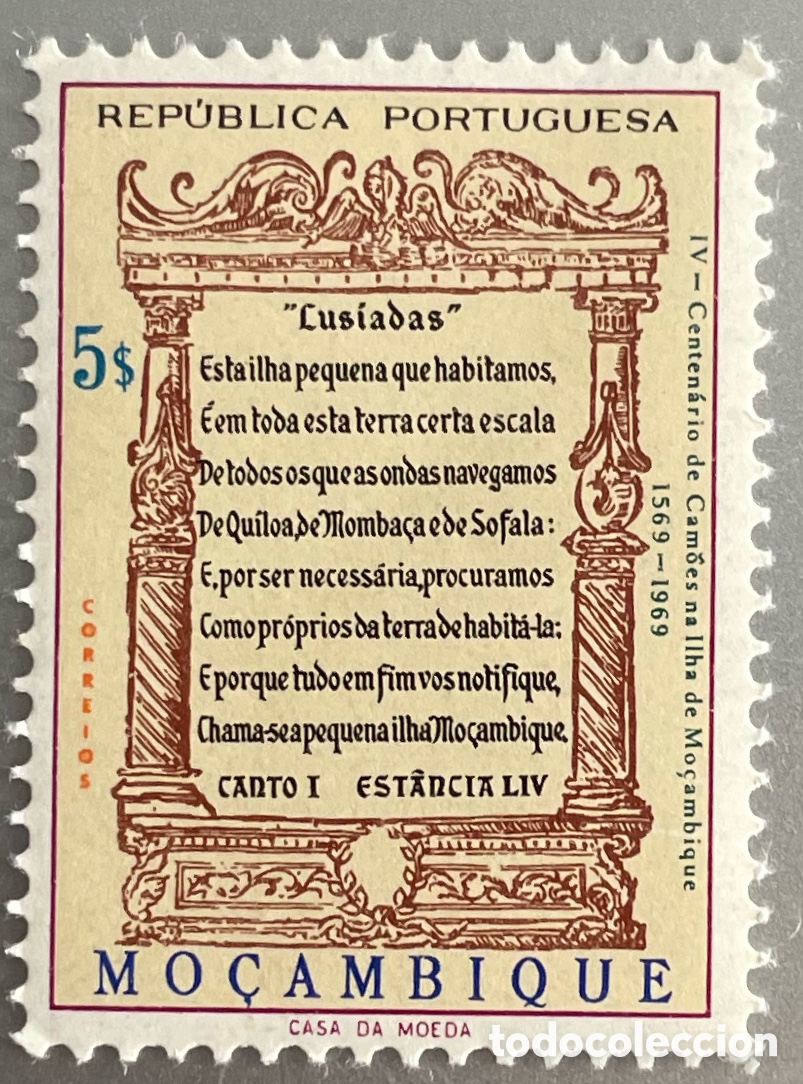 REPÚBLICA PORTUGUESA
"Lusíadas"
5$
Esta ilha pequena que habitamos,
É em toda esta terra certa escala
De todos os que as ondas navegamos
De Quíloa, de Mombaça e de Sofala:
E, por ser necessária, procuramos
Como próprios da terra de habitá-la;
E porque tudo em fim vos notifique,
Chama-se a pequena ilha Moçambique.
CANTO I ESTÂNCIA LIV
CORREIOS
IV - Centenário de Camões na Ilha de Moçambique
1569-1969
MOÇAMBIQUE
CASA DA MOEDA
todocoleccion